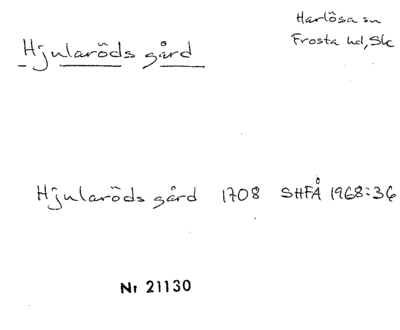 Harlösa sn
Frosta hd, Sk
Hjularöds gård
Hjularöds gård 1708 SHFÅ 1968:36
Nr 21130